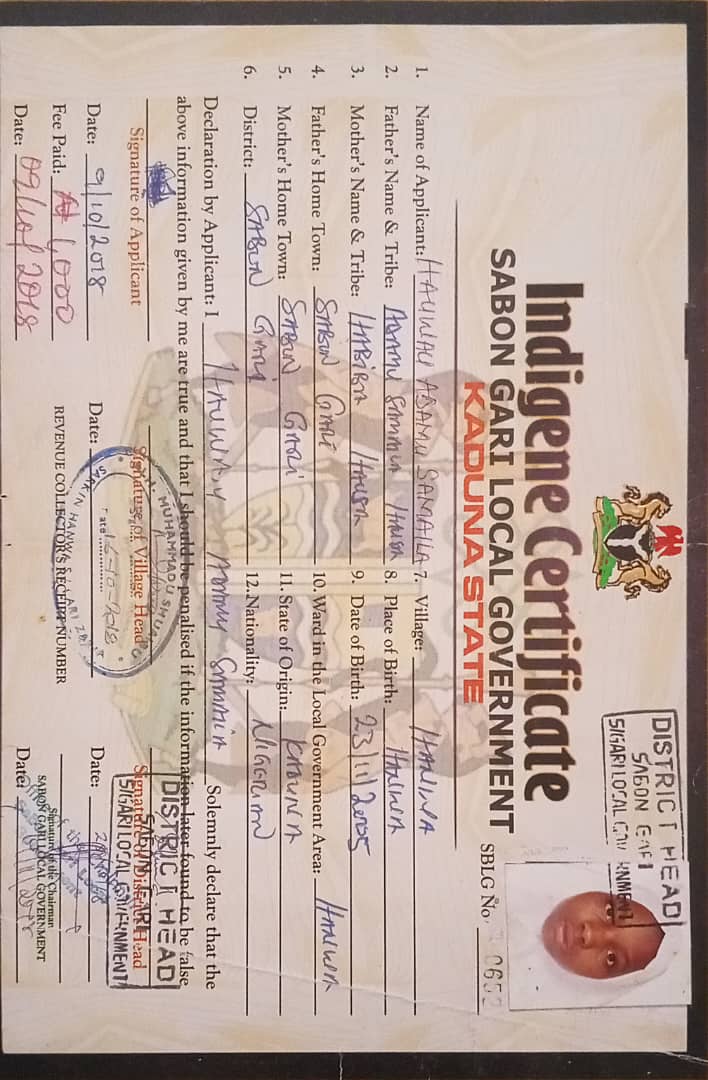 Indigene Certificate
SABON GARI LOCAL GOVERNMENT
KADUNA STATE
DISTRICT HEAD
SABON GARI
S/GARI LOCAL GOVERNMENT
SBLG No. 0652
1. Name of Applicant: HAUWAU ADAMU SAMAILA
2. Father's Name & Tribe: ADAMU SAMAILA HAUSA
3. Mother's Name & Tribe: HABIBA HAUSA
4. Father's Home Town: SABON GARI
5. Mother's Home Town: SABON GARI
6. District: SABON GARI
7. Village: HANWA
8. Place of Birth: HANWA
9. Date of Birth: 23/11/2005
10. Ward in the Local Government Area: HANWA
11. State of Origin: KADUNA
12. Nationality: NIGERIAN
Declaration by Applicant: I HAUWAU ADAMU SAMAILA Solemnly declare that the
above information given by me are true and that I should be penalised if the information later found to be false
Signature of Applicant
Date: 9/10/2018
Fee Paid: ₦ 1,000
Date: 09/10/2018
Signature of Village Head
MUHAMMADU SHUAIBU
SARKIN HANWA S/GARI
Date 16-10-2018
Date:
REVENUE COLLECTOR'S RECEIPT NUMBER
DISTRICT HEAD
SABON GARI
S/GARI LOCAL GOVERNMENT
Signature of District Head
Date:
Signature of the Chairman
SABON GARI LOCAL GOVERNMENT
Date: